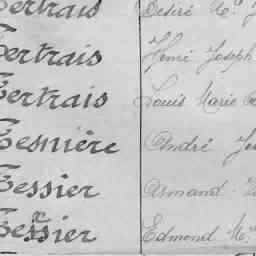 Tertrais Désiré M.
Tertrais Henri Joseph
Tertrais Louis Marie
Tesnière André
Tessier Armand
Tessier Edmond M.